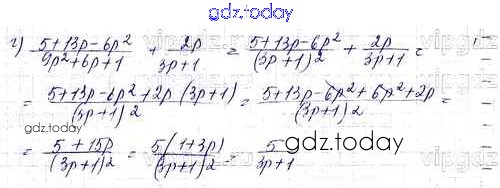 gdz.today
г) (5+13p-6p²)/(9p²+6p+1) + 2p/(3p+1) = (5+13p-6p²)/(3p+1)2 + 2p/(3p+1) =
= (5+13p-6p²+2p (3p+1))/(3p+1)2 = (5+13p-6p²+6p²+2p)/(3p+1)2 =
gdz.today
= (5+15p)/(3p+1)2 = 5(1+3p)/(3p+1)2 = 5/(3p+1)
gdz.today